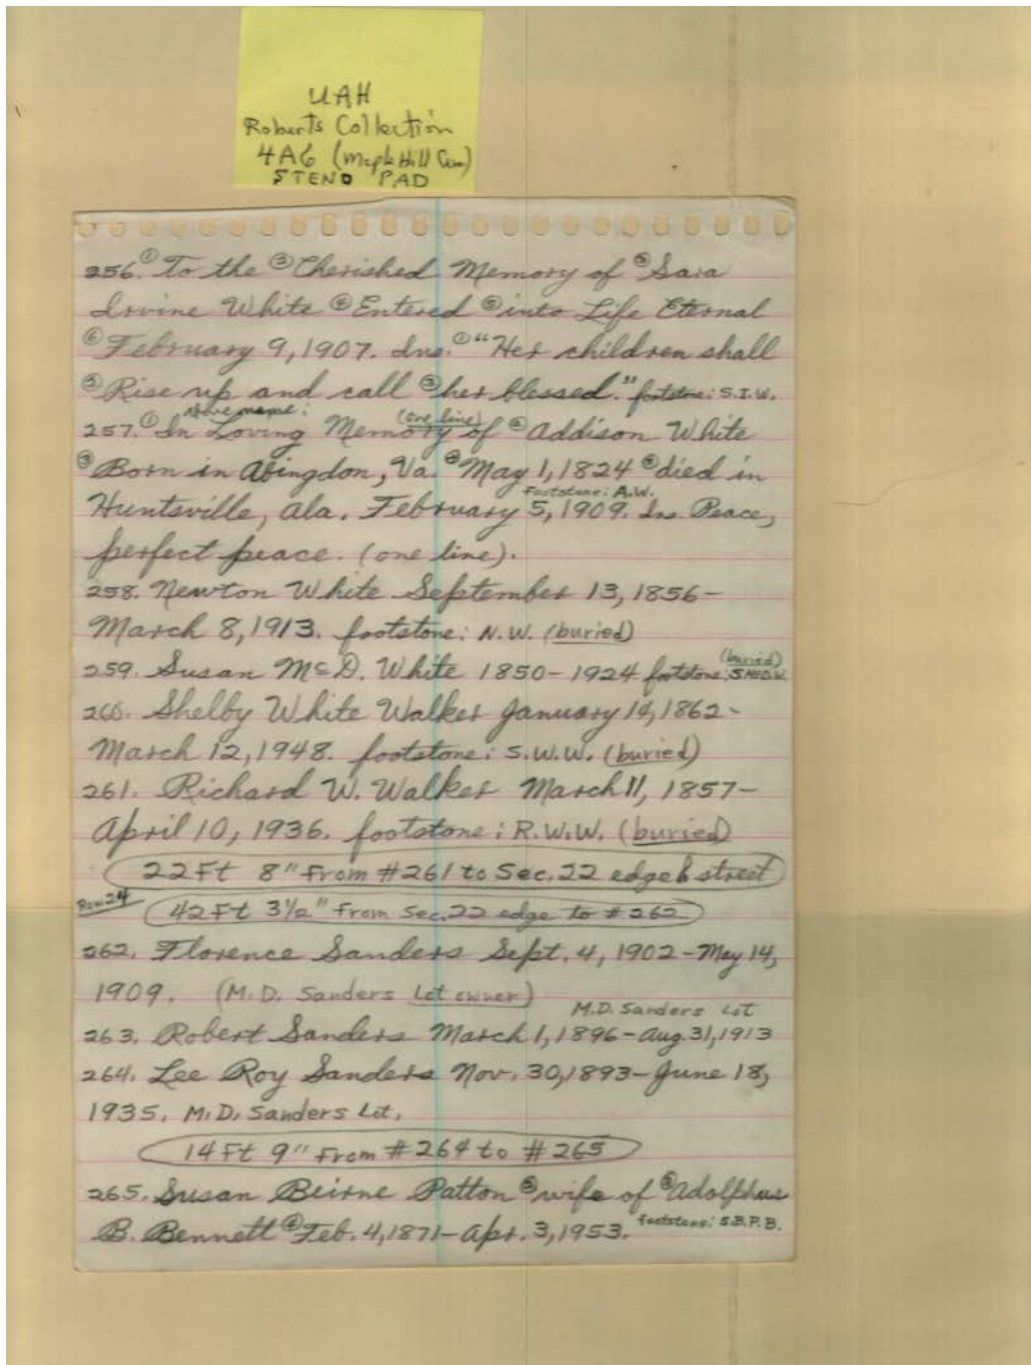 UAH
Roberts Collection
4A6 (Maple Hill Cem)
STENO PAD
256. ① To the ② Cherished Memory of ③ Sara
Irvine White ④ Entered ⑤ into Life Eternal
⑥ February 9, 1907. Ins. ① "Her children shall
② Rise up and call ③ her blessed." footstone: S.I.W.
above name: (one line)
257. ① In Loving Memory of ② Addison White
③ Born in Abingdon, Va. ④ May 1, 1824 ⑤ died in
Footstone: A.W.
Huntsville, Ala. February 5, 1909. Ins. Peace,
perfect peace. (one line).
258. Newton White September 13, 1856-
March 8, 1913. footstone: N.W. (buried)
(buried)
259. Susan McD. White 1850-1924 footstone: S.McD.W.
260. Shelby White Walker January 14, 1862-
March 12, 1948. footstone: S.W.W. (buried)
261. Richard W. Walker March 11, 1857-
April 10, 1936. footstone: R.W.W. (buried)
22Ft 8" From #261 to Sec. 22 edge & street
Row 24
42Ft 3½" From Sec. 22 edge to #262
262. Florence Sanders Sept. 4, 1902-May 14,
1909. (M.D. Sanders Lot owner)
M.D. Sanders Lot
263. Robert Sanders March 1, 1896-Aug. 31, 1913
264. Lee Roy Sanders Nov. 30, 1893-June 18,
1935. M.D. Sanders Lot.
14Ft 9" From #264 to #265
265. Susan Beirne Patton ② wife of ③ Adolphus
B. Bennett ④ Feb. 4, 1871-Apr. 3, 1953. footstone: S.B.P.B.